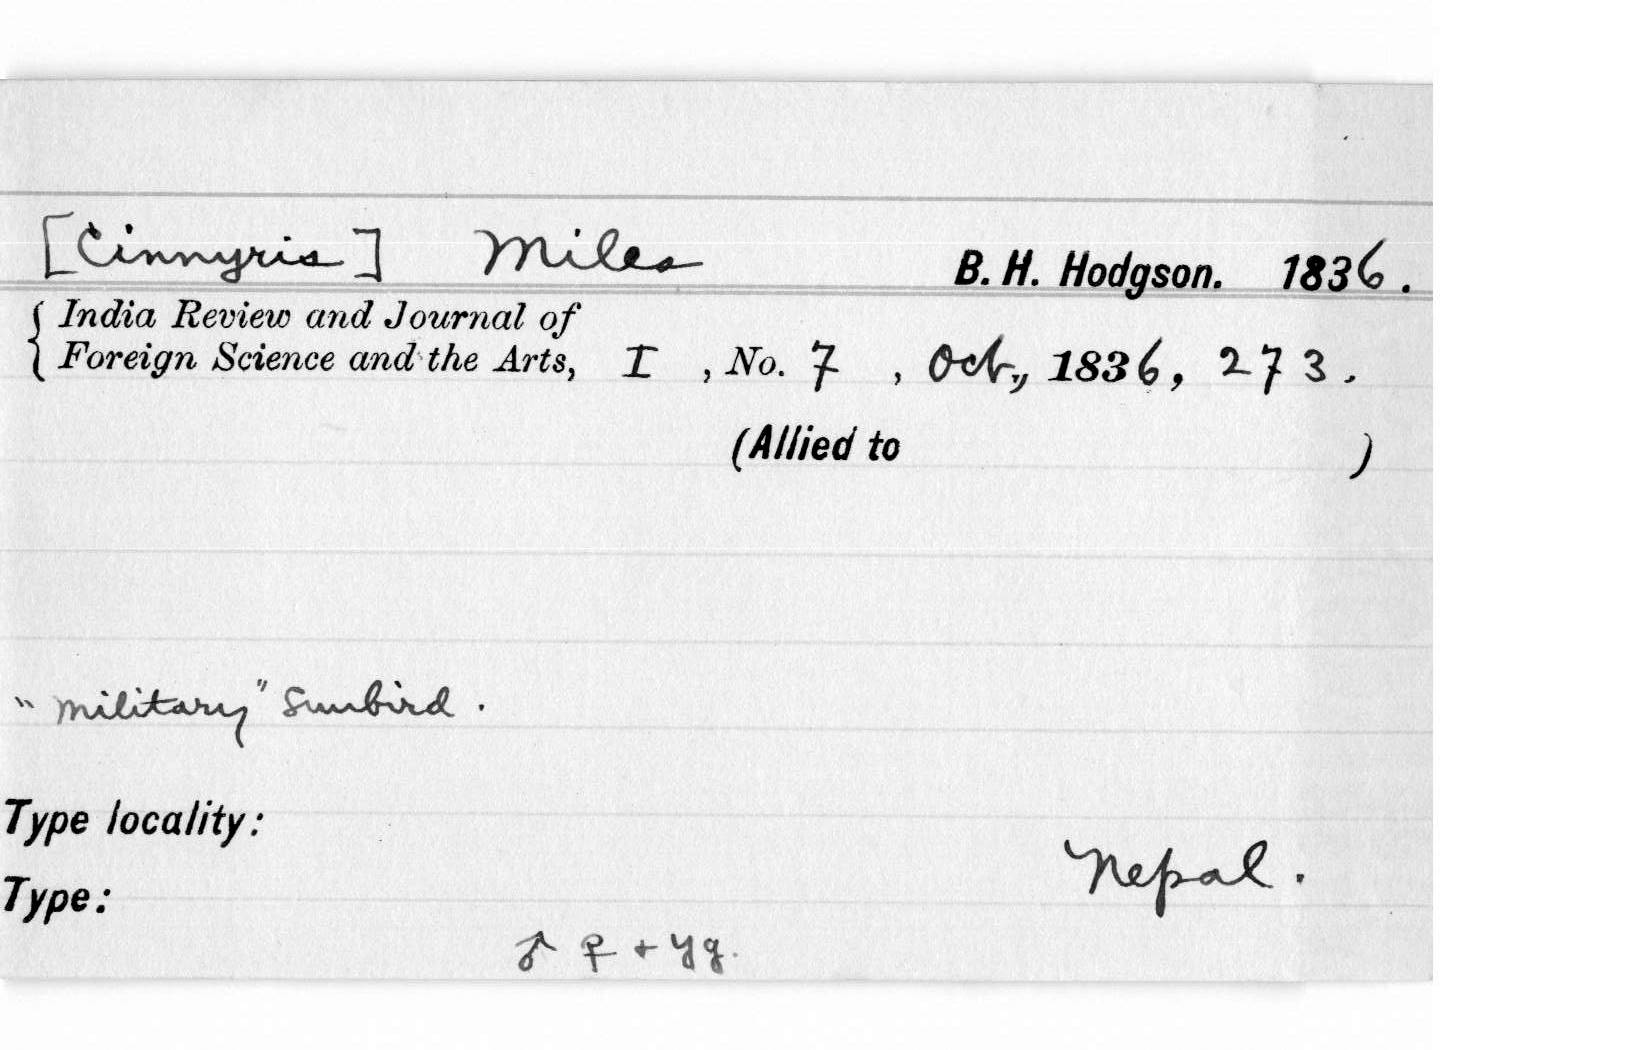 [Cinnyris] Miles B. H. Hodgson. 1836.
{ India Review and Journal of
Foreign Science and the Arts, I , No. 7 , Oct., 1836, 273.
(Allied to )
"Military" Sunbird.
Type locality:
Nepal.
Type:
♂ ♀ + yg.